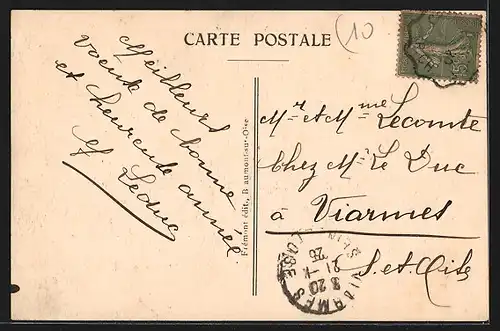 CARTE POSTALE
10
Meilleurs
voeux de bonne
et heureuse année
Leduc
Frémont édit., Beaumont-sur-Oise
Mr et Mme Lecomte
Chez Mr Le Duc
à Viarmes
S. et Oise
VIARMES
SEINE
8 20
21 -